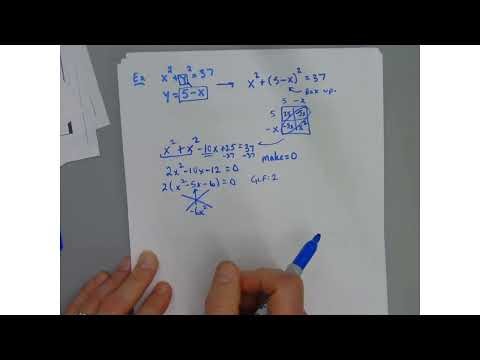 Ex x² + y² = 37 → x² + (5-x)² = 37
y = 5-x
Box
5 -x
5 25 -5x
-x -5x x²
x² + x² - 10x + 25 = 37
-37 -37 make = 0
2x² - 10x - 12 = 0
2(x² - 5x - 6) = 0 GCF: 2
-6x²